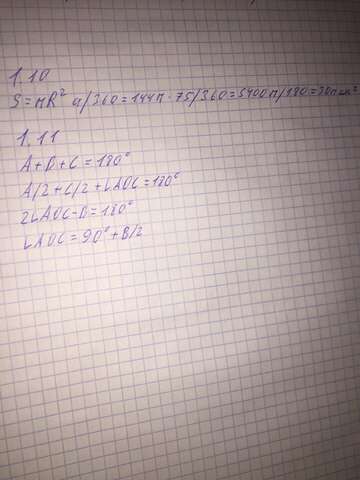 1.10
S = πR² α/360 = 144π · 75/360 = 5400π/180 = 30π см²
1.11
A + B + C = 180°
A/2 + C/2 + ∠AOC = 180°
2∠AOC - B = 180°
∠AOC = 90° + B/2